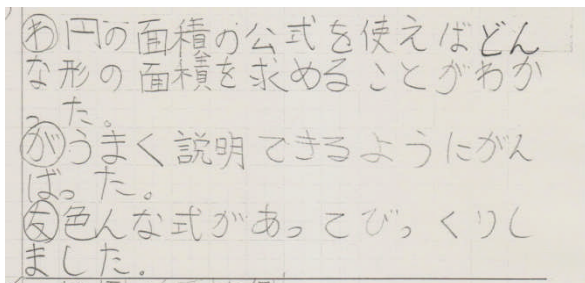 わ円の面積の公式を使えばどん
な形の面積を求めることがわか
った。
がうまく説明できるようにがん
ばった。
友色んな式があってびっくりし
ました。